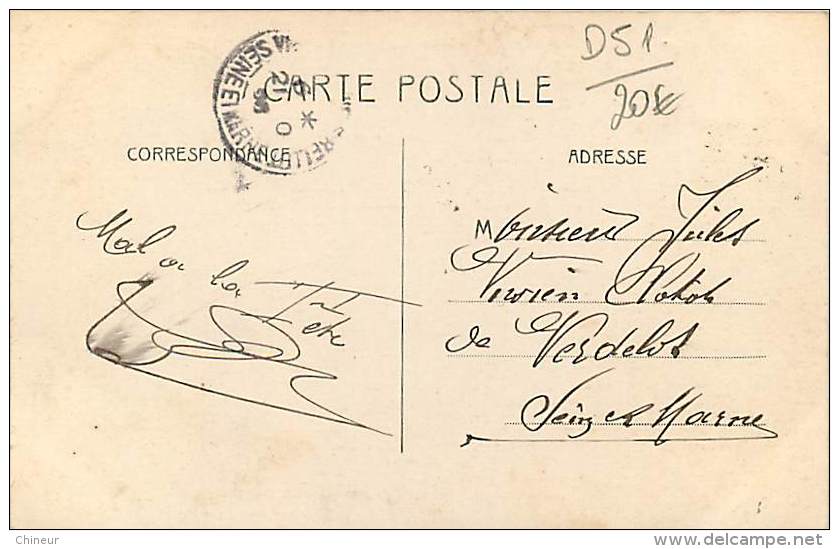 D51.
20€
CARTE POSTALE
CORRESPONDANCE
ADRESSE
SEINE ET MARNE
Mal
Fête
Monsieur Jules
Vivien
de Verdelot
Seine et Marne
Chineur
delcampe.net